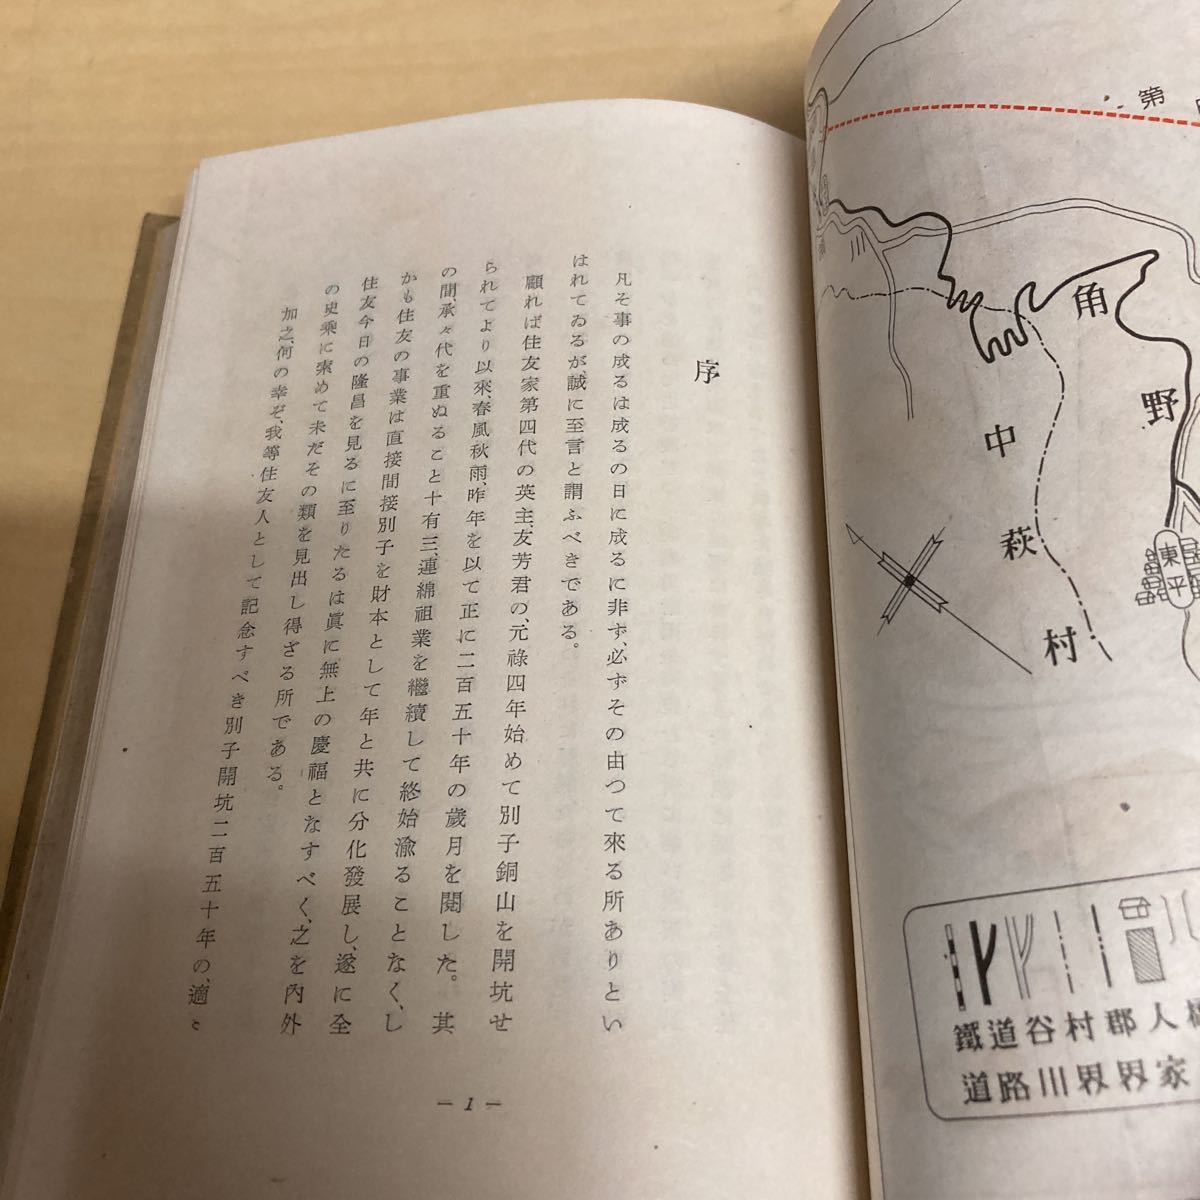 序
凡そ事の成るは成るの日に成るに非ず、必ずその由つて來る所ありとい
はれてゐるが、誠に至言と謂ふべきである。
顧れば住友家第四代の英主、友芳君の、元祿四年始めて別子銅山を開坑せ
られてより以來、春風秋雨、昨年を以て正に二百五十年の歲月を閱した。其
の間、承々代を重ぬること十有三、連綿祖業を繼續して終始渝ることなく、し
かも住友の事業は直接間接別子を財本として年と共に分化發展し、遂に全
住友今日の隆昌を見るに至りたるは眞に無上の慶福となすべく、之を內外
の史乘に索めて未だその類を見出し得ざる所である。
加之、何の幸ぞ、我等住友人として記念すべき別子開坑二百五十年の、適〻
— 1 —
第
角野
中萩村
東平
鐵道
道路
谷川
村界
郡界
人家